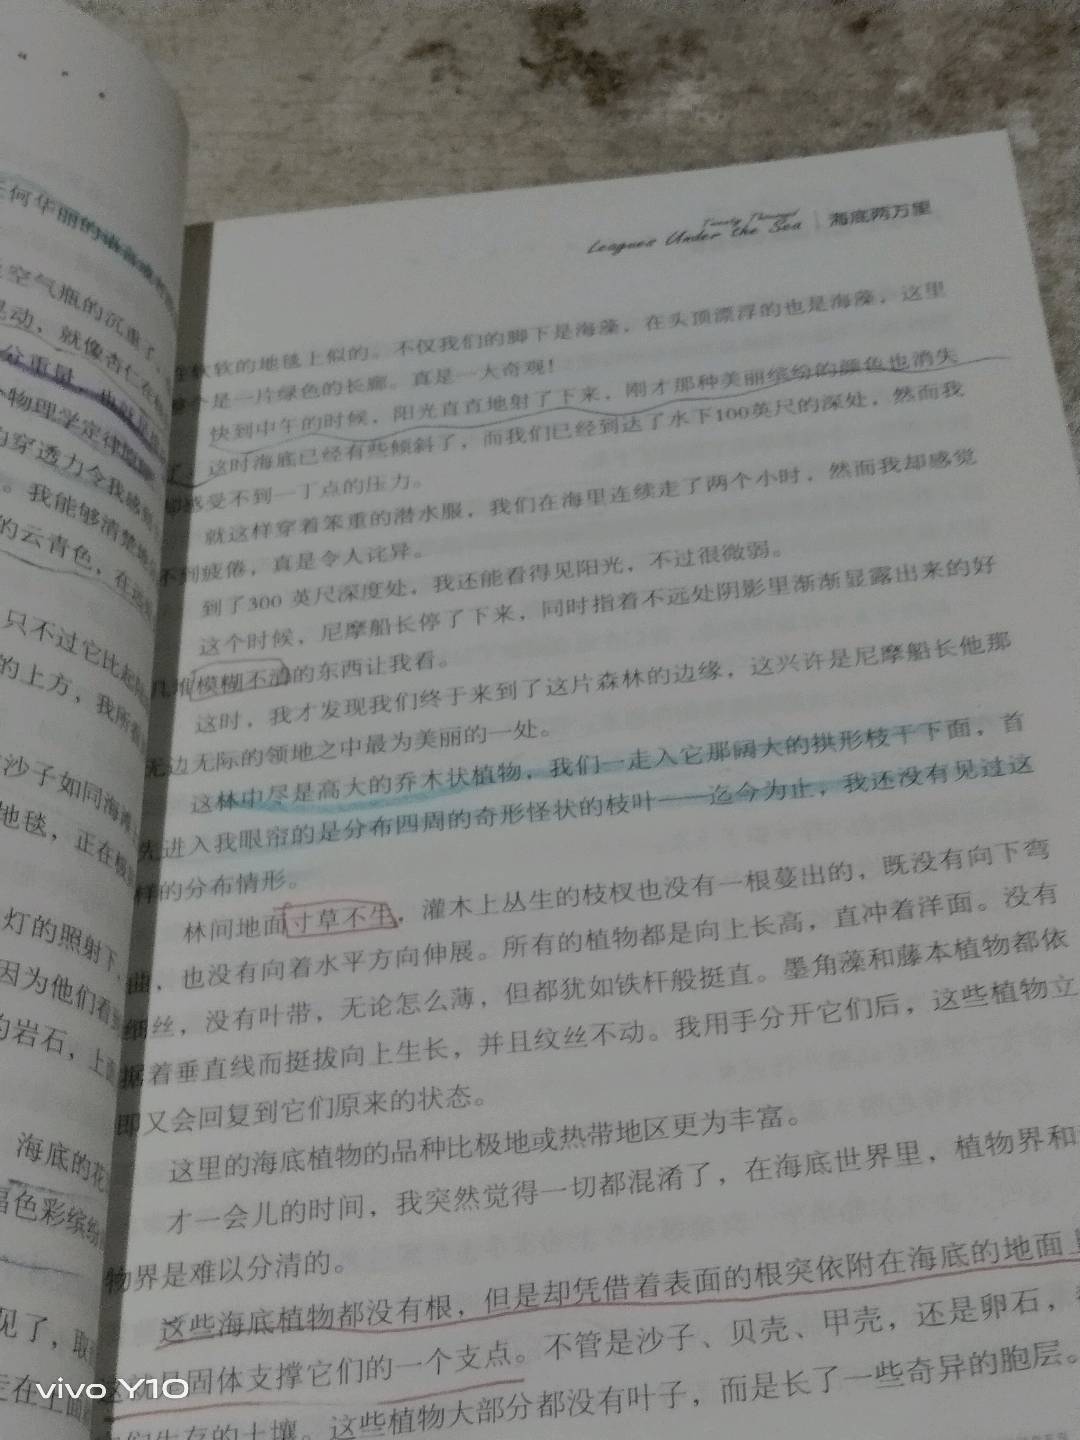 何华丽的语言
空气瓶的沉重了
动，就像杏仁在
分重量，也
物理学定律
穿透力令我感
。我能够清楚
的云青色，在
只不过它比起
的上方，我所
沙子如同海滩
地毯，正在
灯的照射下，
因为他们看
的岩石，上面
海底的花
色彩缤纷
见了，取
Twenty Thousand
Leagues Under the Sea | 海底两万里
在软软的地毯上似的。不仅我们的脚下是海藻，在头顶漂浮的也是海藻，这里
个是一片绿色的长廊。真是一大奇观！
快到中午的时候，阳光直直地射了下来，刚才那种美丽缤纷的颜色也消失
了，这时海底已经有些倾斜了，而我们已经到达了水下100英尺的深处，然而我
却感受不到一丁点的压力。
就这样穿着笨重的潜水服，我们在海里连续走了两个小时，然而我却感觉
不到疲倦，真是令人诧异。
到了300 英尺深度处，我还能看得见阳光，不过很微弱。
这个时候，尼摩船长停了下来，同时指着不远处阴影里渐渐显露出来的好
几堆模糊不清的东西让我看。
这时，我才发现我们终于来到了这片森林的边缘，这兴许是尼摩船长他那
无边无际的领地之中最为美丽的一处。
这林中尽是高大的乔木状植物，我们一走入它那阔大的拱形枝干下面，首
先进入我眼帘的是分布四周的奇形怪状的枝叶——迄今为止，我还没有见过这
样的分布情形。
林间地面寸草不生，灌木上丛生的枝杈也没有一根蔓出的，既没有向下弯
曲，也没有向着水平方向伸展。所有的植物都是向上长高，直冲着洋面。没有
细丝，没有叶带，无论怎么薄，但都犹如铁杆般挺直。墨角藻和藤本植物都依
据着垂直线而挺拔向上生长，并且纹丝不动。我用手分开它们后，这些植物立
即又会回复到它们原来的状态。
这里的海底植物的品种比极地或热带地区更为丰富。
才一会儿的时间，我突然觉得一切都混淆了，在海底世界里，植物界和
物界是难以分清的。
这些海底植物都没有根，但是却凭借着表面的根突依附在海底的地面
固体支撑它们的一个支点。不管是沙子、贝壳、甲壳，还是卵石，
们生存的土壤。这些植物大部分都没有叶子，而是长了一些奇异的胞层。
vivo Y10